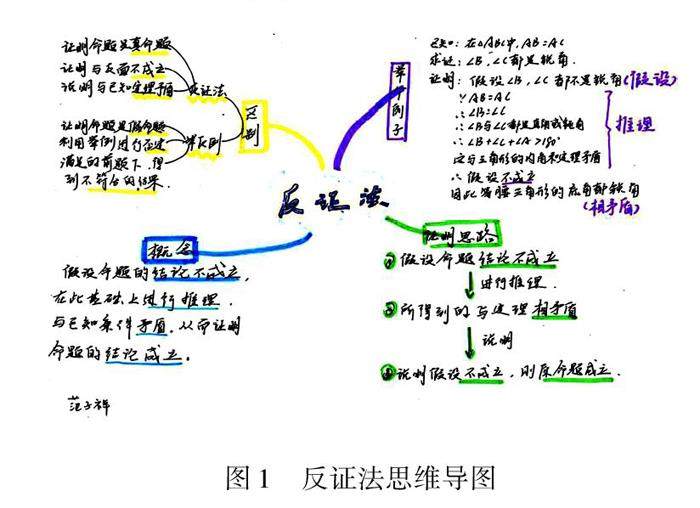 证明命题是真命题
证明与反面不成立
说明与已知定理矛盾
反证法
证明命题是假命题
利用举例进行否定
满足的前题下，得
到不符合的结果.
举反例
区别
举个例子
已知：在△ABC中，AB=AC
求证：∠B，∠C都是锐角.
证明：假设∠B，∠C都不是锐角(假设)
∵AB=AC
∴∠B=∠C
∴∠B与∠C都是直角或钝角
∴∠B+∠C+∠A>180°
这与三角形的内角和定理矛盾
∴假设不成立
因此等腰三角形的底角都锐角
推理
(相矛盾)
反证法
概念
假设命题的结论不成立,
在此基础上进行推理.
与已知条件矛盾.从而证明
命题的结论成立.
证明思路
①假设命题结论不成立
进行推理.
②所得到的与定理相矛盾
说明
③说明假设不成立，则原命题成立.
范子祥
图1 反证法思维导图